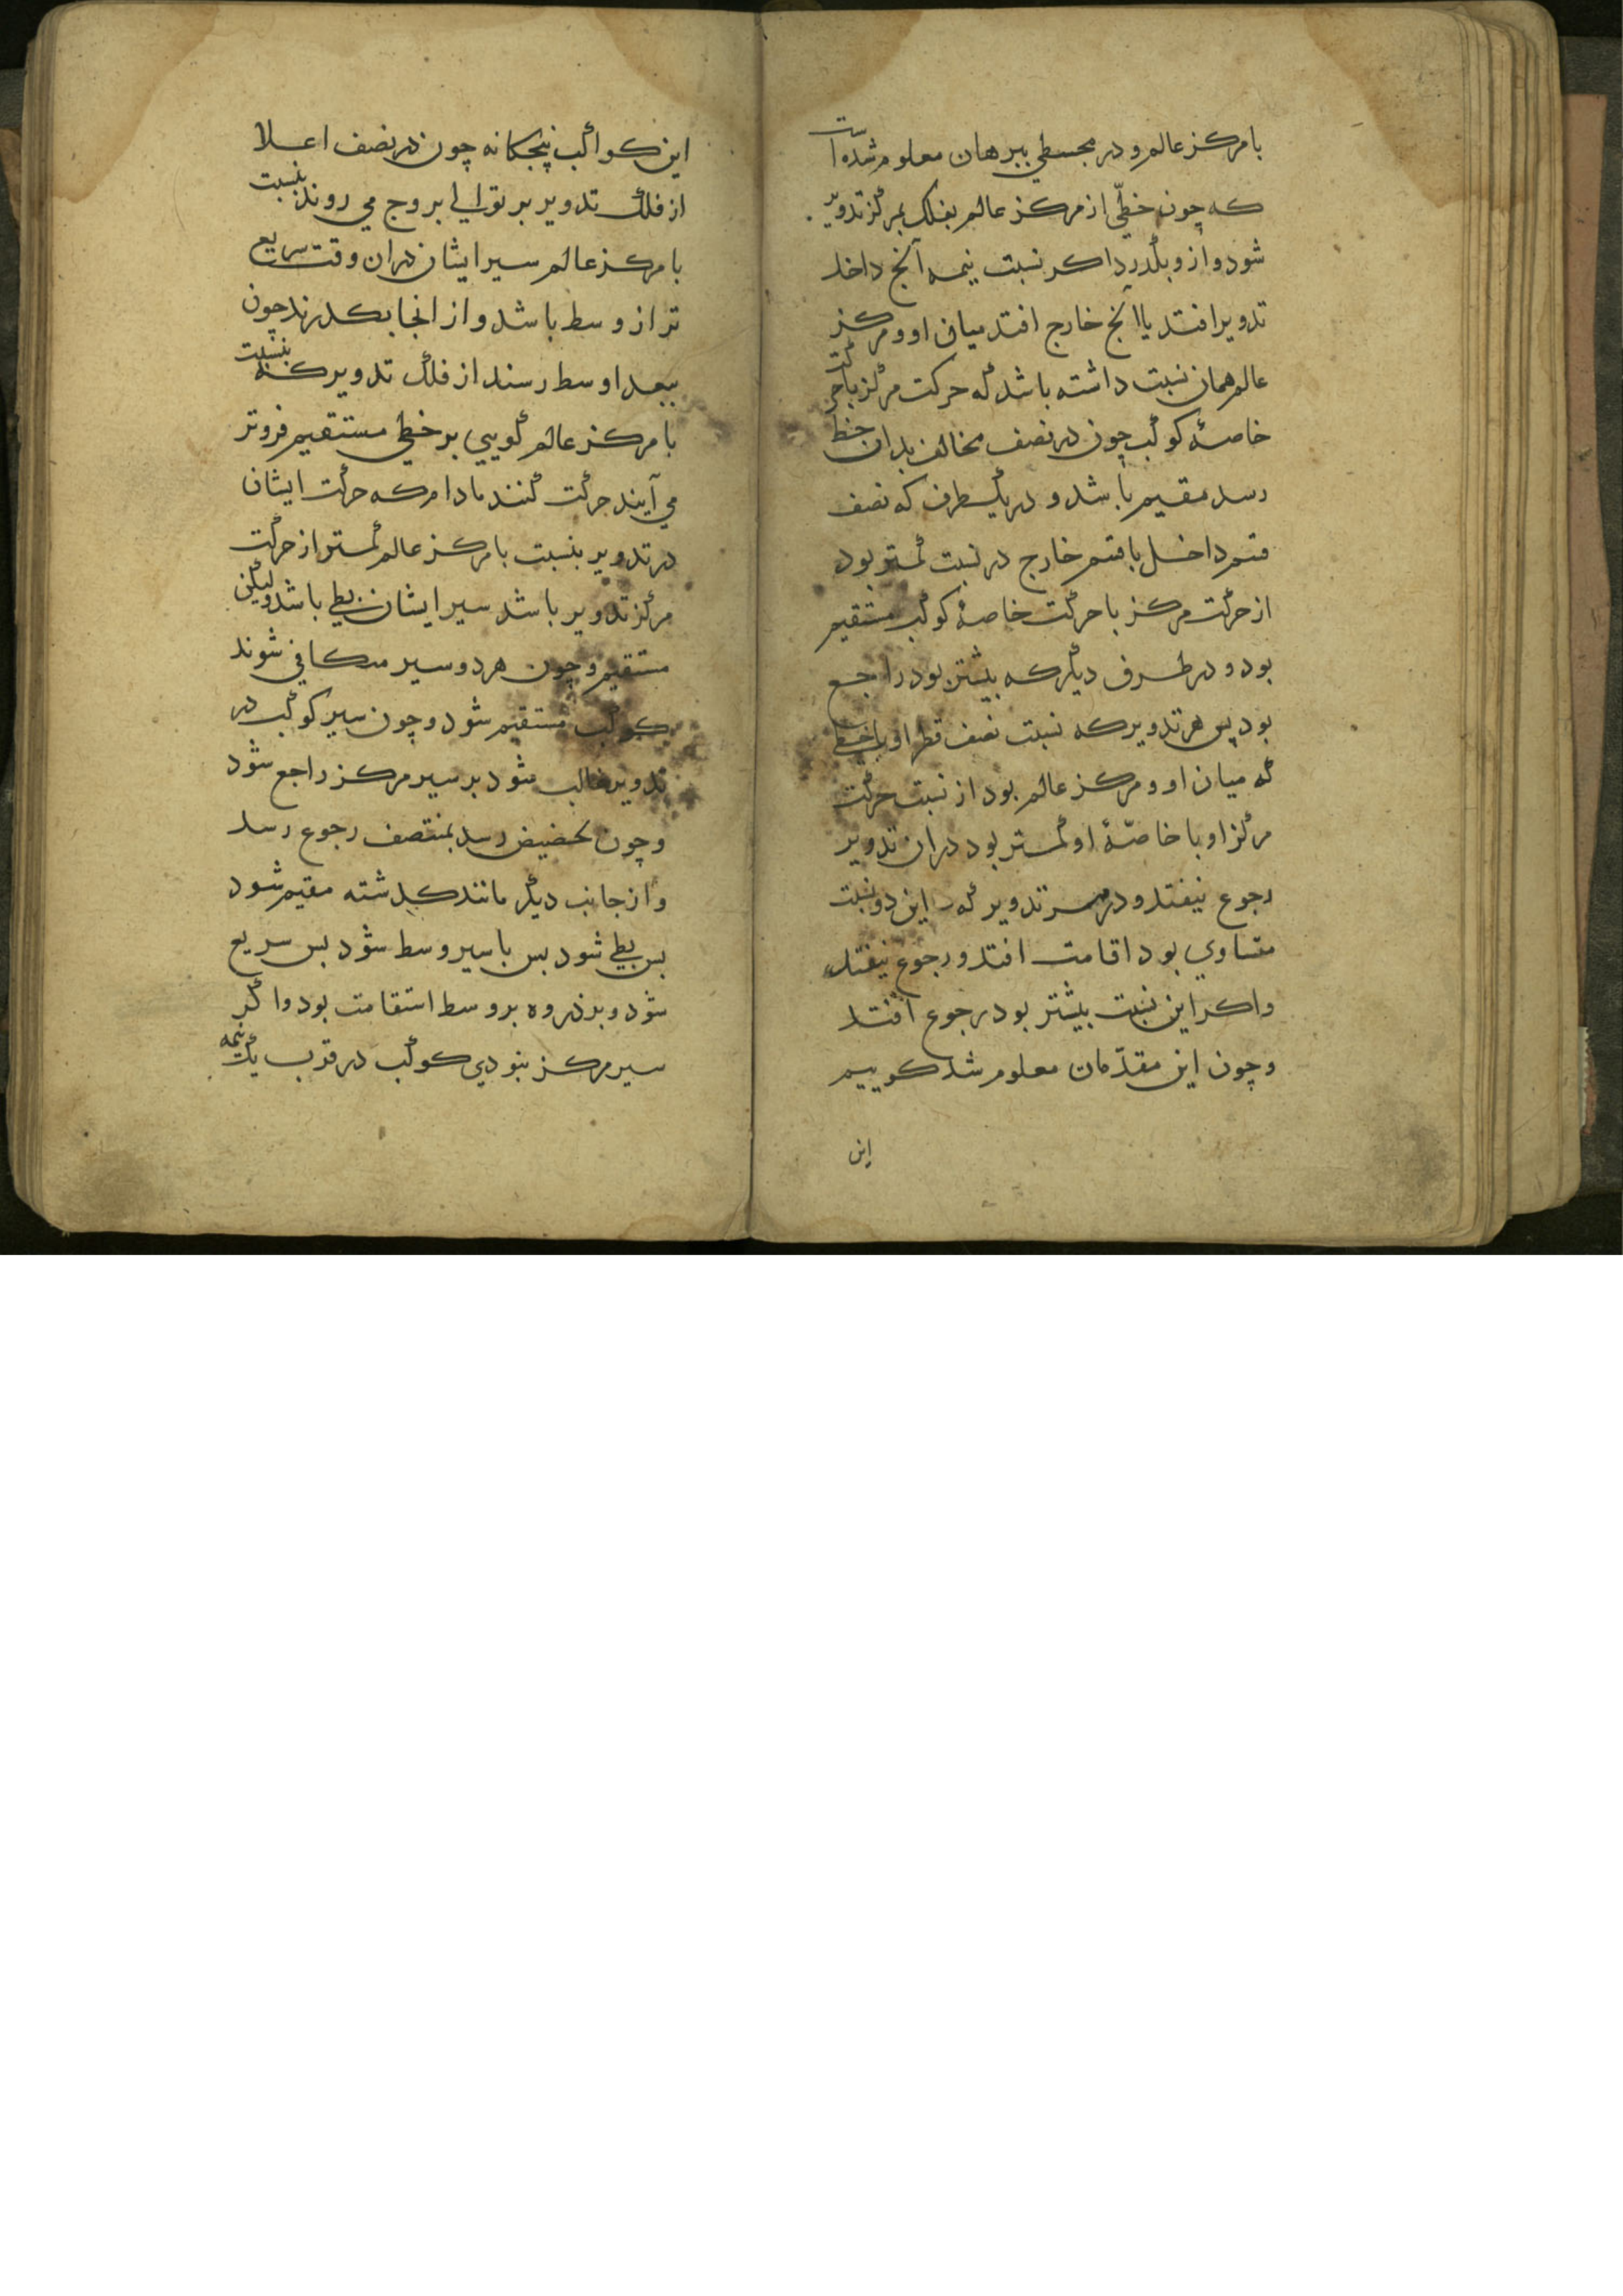 با مرکز عالم و در مجسطی ببرهان معلوم شده است
که چون خطّی از مرکز عالم بفلک بمرکز تدویر
شود و از و بگذرد اکر نسبت نیمه آنج داخل
تدویر افتد یا آنج خارج افتد میان او و مرکز
عالم همان نسبت داشته باشد که حرکت مرکز با حرکت
خاصهٔ کوکب چون در نصف مخالف بدان خط
رسد مقیم باشد و در یکطرف که نصف
قسم داخل با قسم خارج در نسبت کمتر بود
از حرکت مرکز با حرکت خاصهٔ کوکب مستقیم
بود و در طرف دیگر که بیشتر بود راجع
بود پس هر تدویر که نسبت نصف قطر او با خطی
که میان او و مرکز عالم بود از نسبت حرکت
مرکز او با خاصّهٔ او کمتر بود در ان تدویر
رجوع نیفتد و در هر تدویر که این دو نسبت
متساوی بود اقامت افتد و رجوع نیفتد
و اکر این نسبت بیشتر بود رجوع افتد
و چون این مقدّمات معلوم شد کوییم
این
این کواکب پنجکانه چون در نصف اعلا
از فلک تدویر بر توالی بروج می روند بنسبت
با مرکز عالم سیر ایشان در ان وقت سریع
تر از وسط باشد و از انجا بکذرند چون
ببعد اوسط رسند از فلک تدویر که بنسبت
با مرکز عالم کویی بر خطی مستقیم فروتر
می آیند حرکت کنند مادام که حرکت ایشان
در تدویر بنسبت با مرکز عالم کمتر از حرکت
مرکز تدویر باشد سیر ایشان بطی باشد ولیکن
مستقیم و چون هر دو سیر متکافی شوند
کوکب مستقیم شود و چون سیر کوکب در
تدویر غالب شود بر سیر مرکز راجع شود
و چون بحضیض رسد بمنتصف رجوع رسد
و از جانب دیگر مانند کذشته مقیم شود
پس بطی شود پس با سیر وسط شود پس سریع
شود و بر ذروه بر وسط استقامت بود و اکر
سیر مرکز نبودی کوکب در قرب یک نیمه